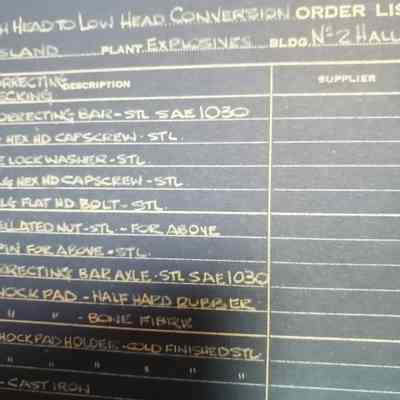 H HEAD TO LOW HEAD CONVERSION ORDER LIS
ISLAND PLANT EXPLOSIVES BLDG. Nº 2 HALL
ORRECTING DESCRIPTION SUPPLIER
ECKING
ORRECTING BAR - STL SAE 1030
HEX HD CAPSCREW - STL.
LOCKWASHER - STL.
LG HEX HD CAPSCREW - STL
LG FLAT HD BOLT - STL.
ELLATED NUT - STL. - FOR ABOVE
PIN FOR ABOVE - STL.
ORRECTING BAR AXLE - STL SAE 1030
HOCK PAD - HALF HARD RUBBER
" " - BONE FIBRE
HOCKPAD HOLDER - COLD FINISHED STL
" " " " "
- CAST IRON